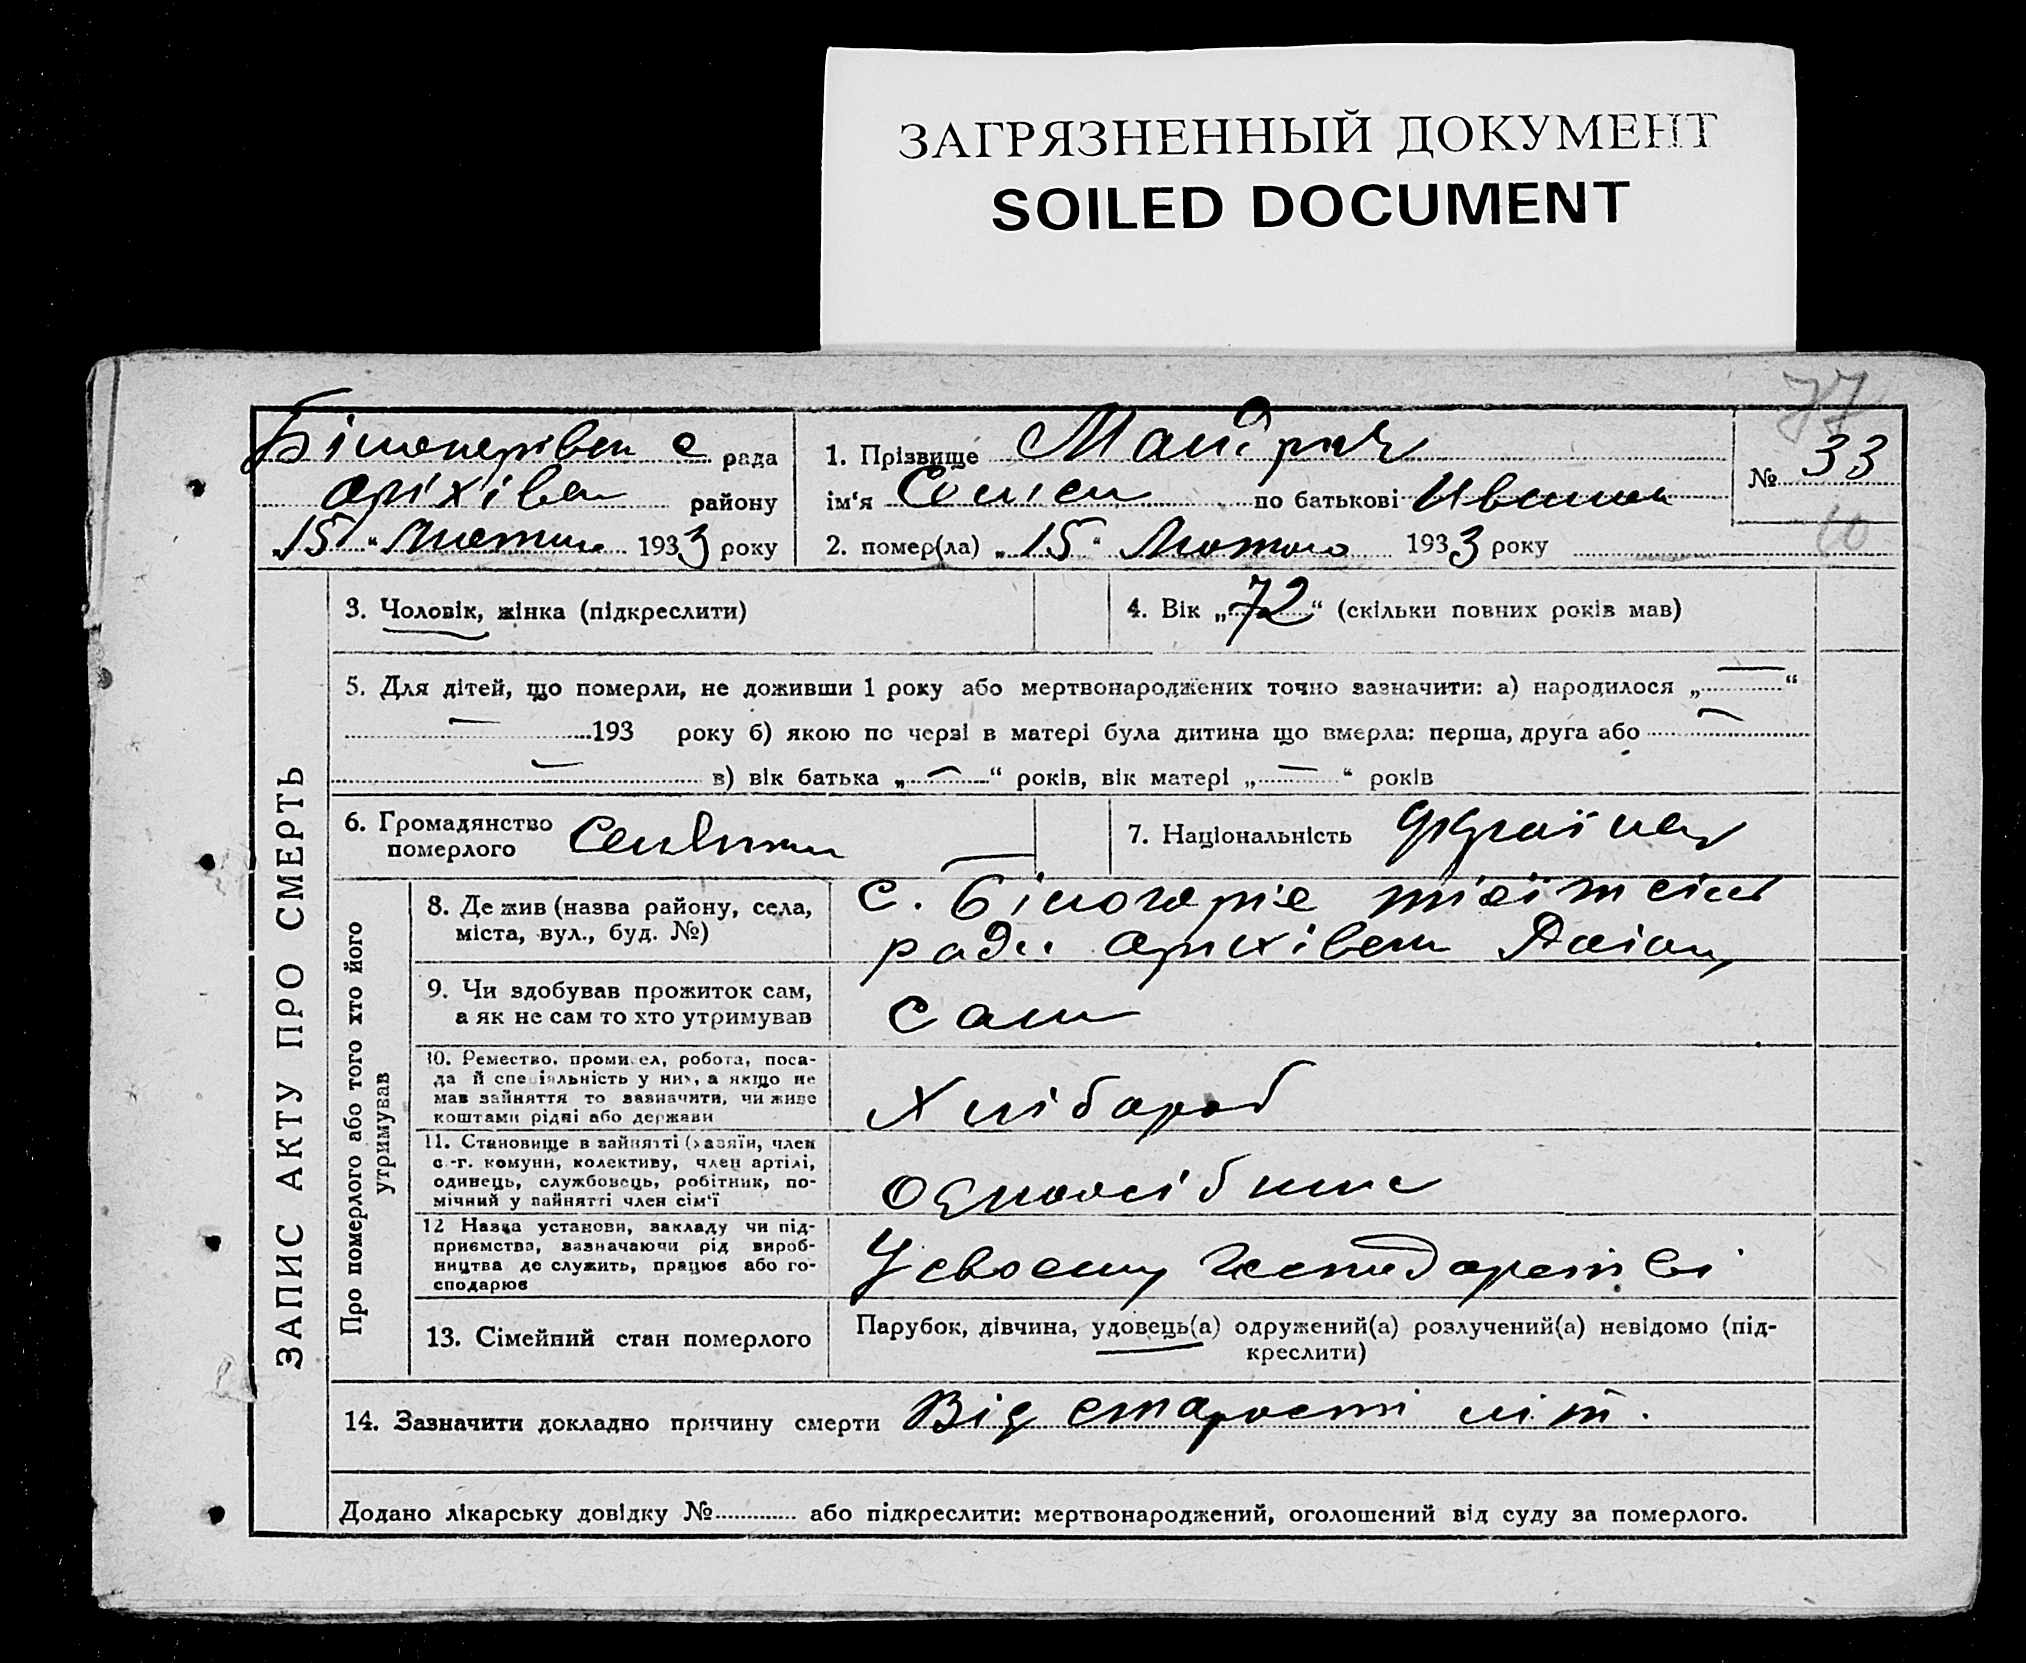 ЗАГРЯЗНЕННЫЙ ДОКУМЕНТ
SOILED DOCUMENT
77
с рада
Оріхівск району
„15“ Лютого 1933 року
1. Прізвище Мандрик
ім‘я по батькові Иванов
№ 33
2. помер(ла) „15“ Лютого 1933 року
10
ЗАПИС АКТУ ПРО СМЕРТЬ
3. Чоловік, жінка (підкреслити)
4. Вік „72“ (скільки повних років мав)
5. Для дітей, що померли, не доживши 1 року або мертвонароджених точно зазначити: а) народилося „—“
— 193 року б) якою по черзі в матері була дитина що вмерла: перша, друга або —
— в) вік батька „—“ років, вік матері „—“ років
6. Громадянство
померлого
7. Національність Українец
Про померлого або того хто його
утримував
8. Де жив (назва району, села,
міста, вул., буд. №)
с. Білогоріє тієїж сіль
ради Оріхівск Раіону
9. Чи здобував прожиток сам,
а як не сам то хто утримував
Сам
10. Ремество, промисел, робота, поса-
да й спеціяльність у них, а якщо не
мав зайняття то зазначити, чи живе
коштами рідні або держави
Хлібороб
11. Становище в зайнятті (хазяїн, член
с.-г. комуни, колективу, член артілі,
одинець, службовець, робітник, по-
мічний у зайнятті член сім‘ї
Одноосібник
12 Назва установи, закладу чи під-
приємства, зазначаючи рід вироб-
ництва де служить, працює або го-
сподарює
У своєму господарстві
13. Сімейний стан померлого
Парубок, дівчина, удовець(а) одружений(а) розлучений(а) невідомо (під-
креслити)
14. Зазначити докладно причину смерти Від старости літ.
Додано лікарську довідку № або підкреслити: мертвонароджений, оголошений від суду за померлого.